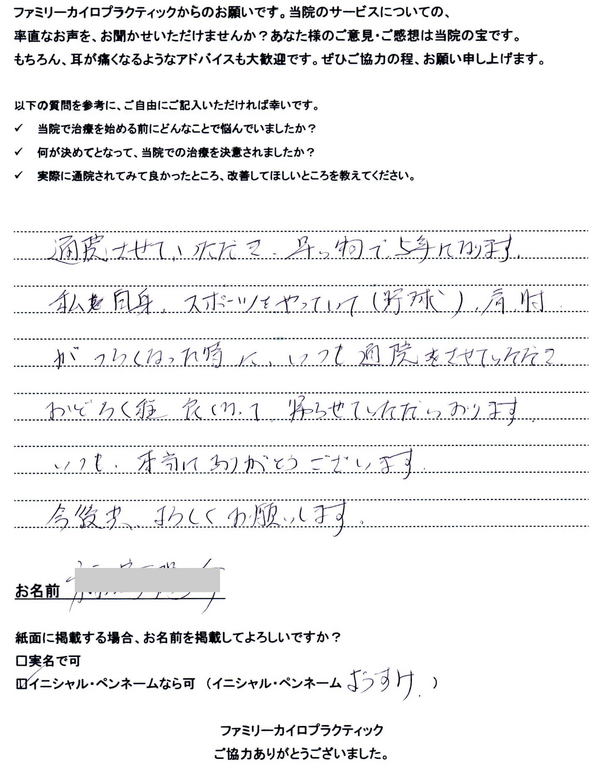 ファミリーカイロプラクティックからのお願いです。当院のサービスについての、
率直なお声を、お聞かせいただけませんか？あなた様のご意見・ご感想は当院の宝です。
もちろん、耳が痛くなるようなアドバイスも大歓迎です。ぜひご協力の程、お願い申し上げます。
以下の質問を参考に、ご自由にご記入いただければ幸いです。
✓ 当院で治療を始める前にどんなことで悩んでいましたか？
✓ 何が決めてとなって、当院での治療を決意されましたか？
✓ 実際に通院されてみて良かったところ、改善してほしいところを教えてください。
通院させていただき、早い物で5年になります。
私自身、スポーツをやっていて(野球)、肩、肘
がつらくなった時に、いつも通院をさせていただき
おどろく程良くなって帰らせていただいております。
いつも、本当にありがとうございます。
今後共、よろしくお願いします。
お名前
紙面に掲載する場合、お名前を掲載してよろしいですか？
□実名で可
☑イニシャル・ペンネームなら可（イニシャル・ペンネーム ようすけ ）
ファミリーカイロプラクティック
ご協力ありがとうございました。